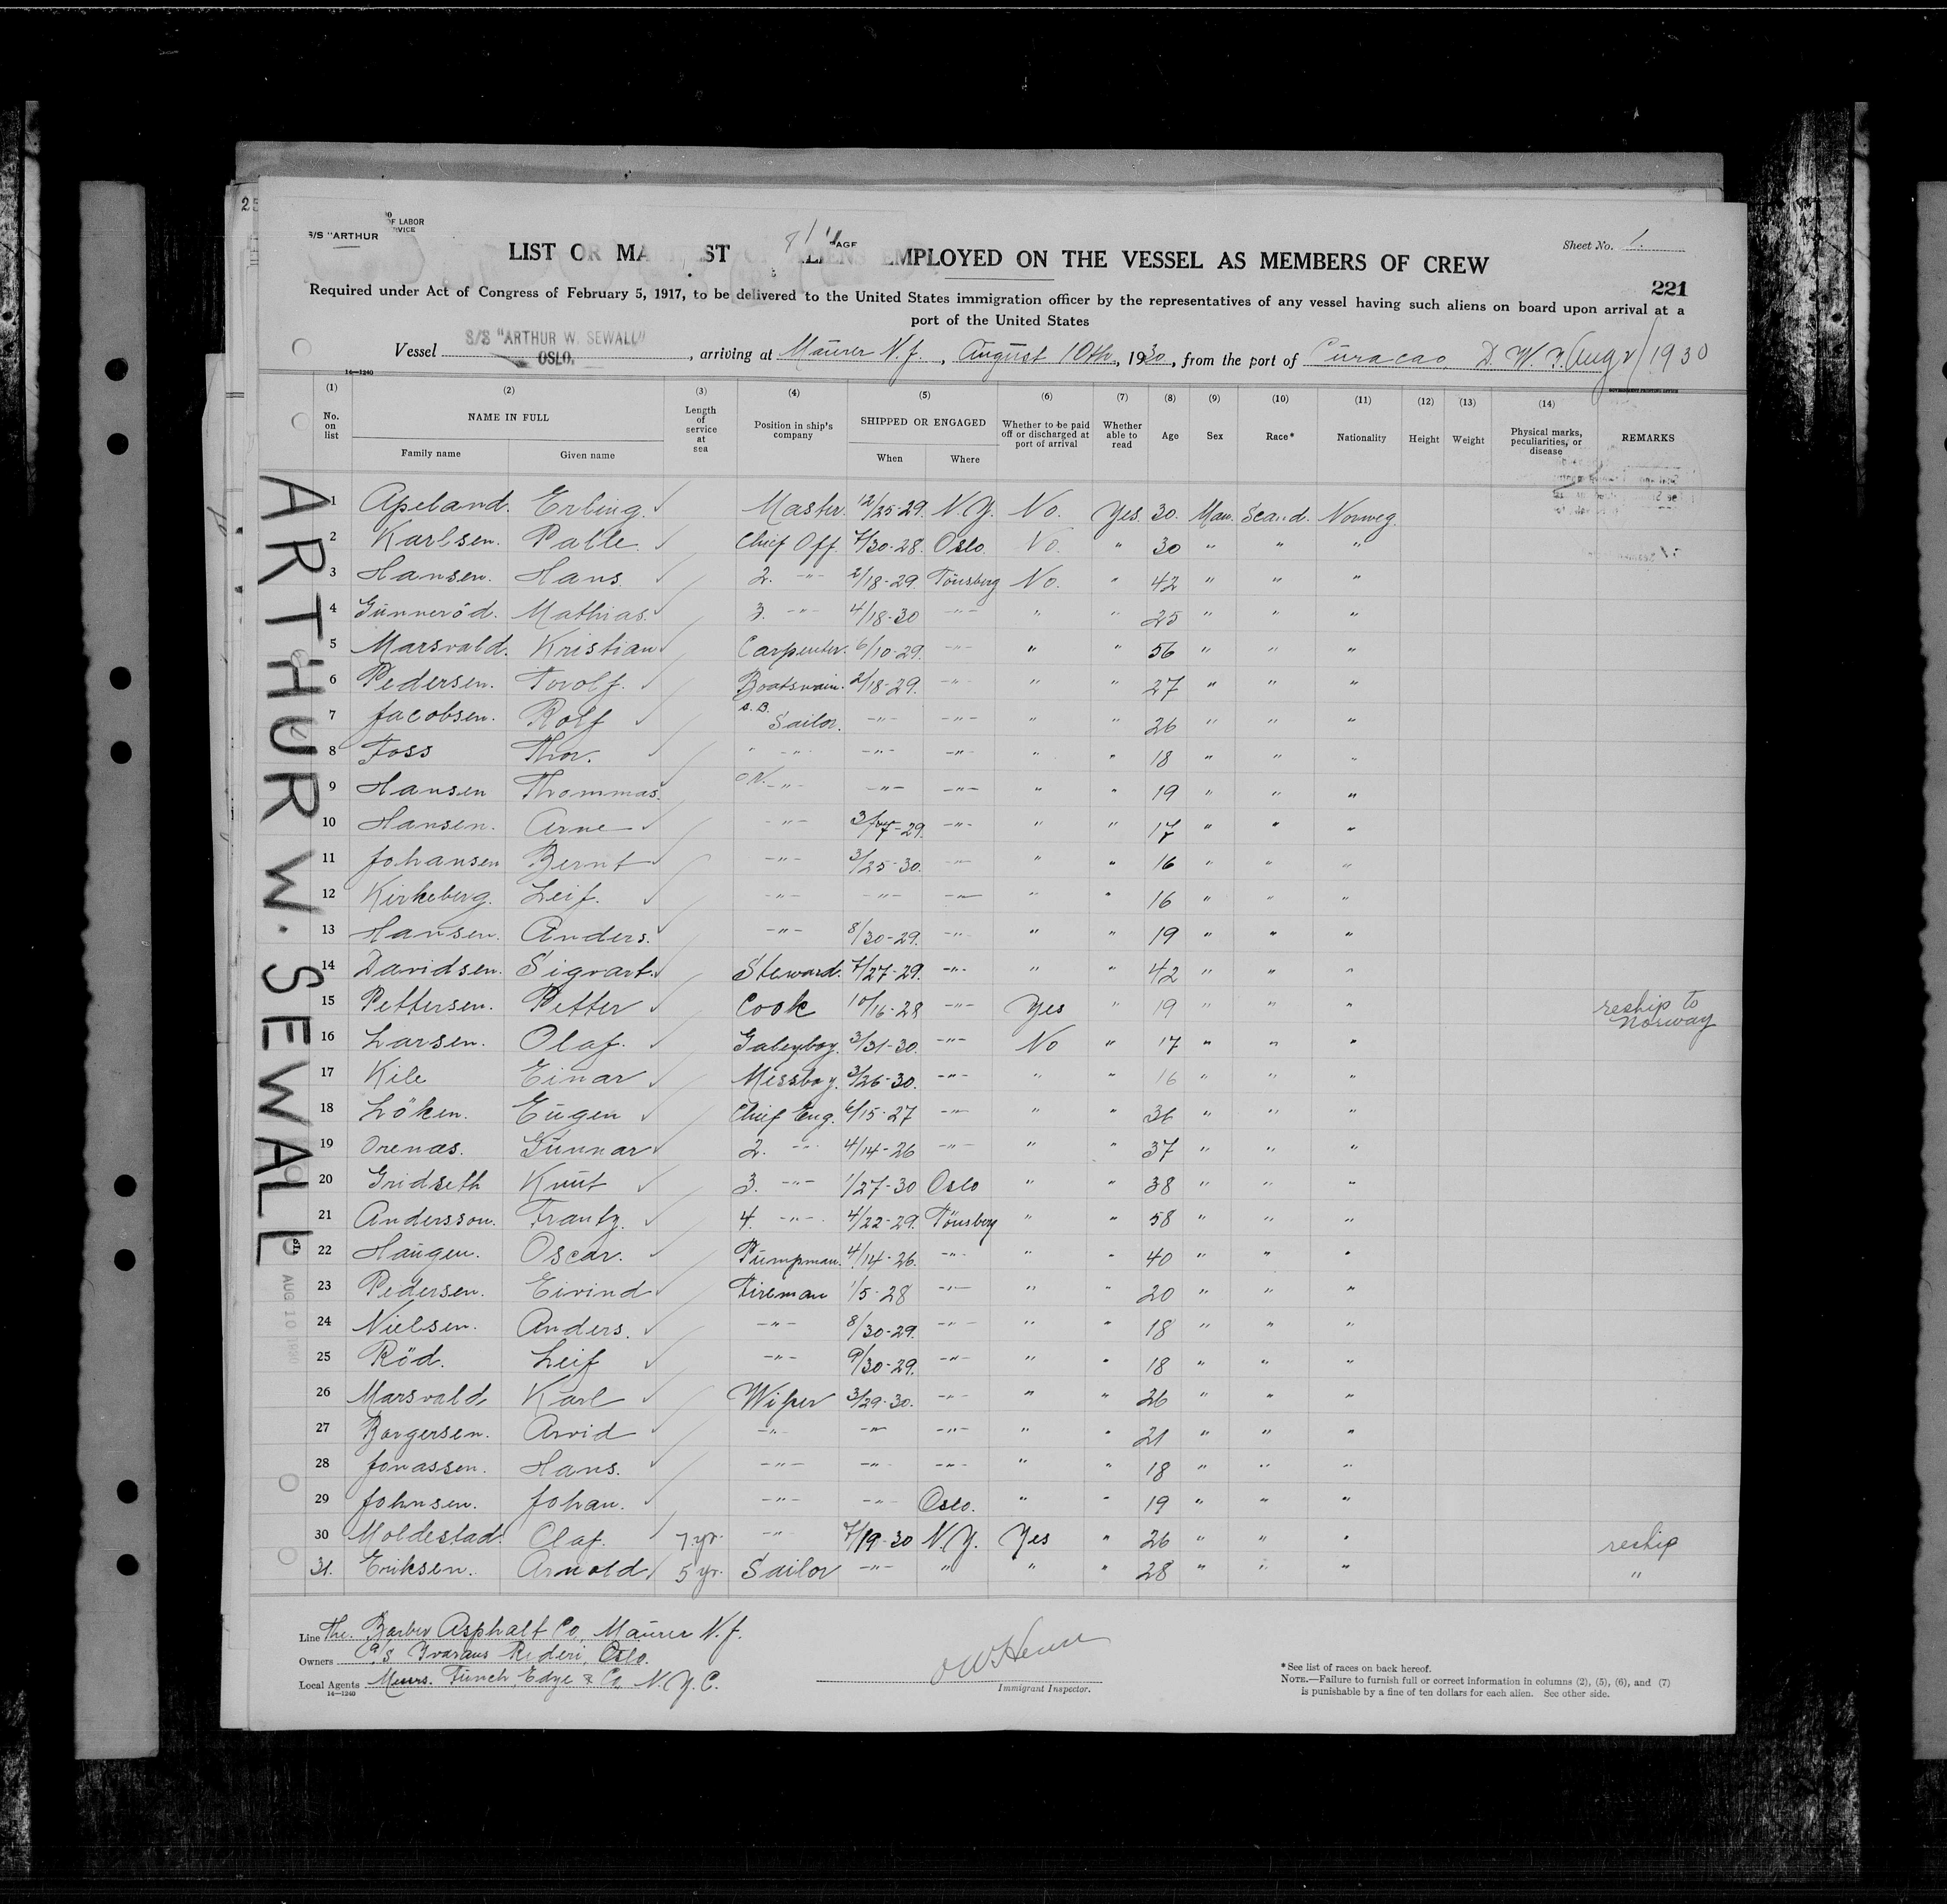 S/S "ARTHUR
OF LABOR
LIST OR MA ST ALIENS EMPLOYED ON THE VESSEL AS MEMBERS OF CREW
Sheet No. 1.
221
Required under Act of Congress of February 5, 1917, to be delivered to the United States immigration officer by the representatives of any vessel having such aliens on board upon arrival at a
port of the United States
Vessel S/S "ARTHUR W. SEWALL" OSLO. , arriving at Maurer N.J. , August 10th, 1930, from the port of Curacao, D. W. I. (Aug 2/1930
14—1240
(1) (2) (3) (4) (5) (6) (7) (8) (9) (10) (11) (12) (13) (14)
No. on list NAME IN FULL Family name Given name Length of service at sea Position in ship's company SHIPPED OR ENGAGED When Where Whether to be paid off or discharged at port of arrival Whether able to read Age Sex Race* Nationality Height Weight Physical marks, peculiarities, or disease REMARKS
ARTHUR W. SEWALL
AUG 10 1930
1 Apeland. Erling. Master. 12/25-29. N.Y. No. Yes 30. Man. Scand. Norweg.
2 Karlsen. Palle. Chief Off. 7/30-28. Oslo. No. " 30 " " "
3 Hansen. Hans. 2. -"- 2/18-29. Tönsberg No. " 42 " " "
4 Gunneröd. Mathias. 3. -"- 4/18-30 -"- " " 25 " " "
5 Marsvald. Kristian Carpenter. 6/10-29. -"- " " 56 " " "
6 Pedersen. Torolf. Boatswain. 2/18-29. -"- " " 27 " " "
7 Jacobsen. Rolf A.B. Sailor. -"- -"- " " 26 " " "
8 Foss Thor. " -"- -"- -"- " " 18 " " "
9 Hansen Thommas. -"- -"- -"- " " 19 " " "
10 Hansen. Arne -"- -29. -"- " " 17 " " "
11 Johansen Bernt -"- 3/25-30. -"- " " 16 " " "
12 Kirkeberg. Leif. -"- -"- -"- " " 16 " " "
13 Hansen. Anders. -"- 8/30-29. -"- " " 19 " " "
14 Davidsen. Sigvart. Steward. 7/27-29. -"- " " 42 " " "
15 Pettersen. Petter Cook 10/16-28 -"- Yes " 19 " " " reship to Norway
16 Larsen. Olaf. Galeyboy. 3/31-30. -"- No " 17 " " "
17 Kile Einar Messboy. 3/26-30. -"- " " 16 " " "
18 Löken. Eugen Chief Eng. 6/15-27 -"- " " 36 " " "
19 Orenas. Gunnar 2. -"- 4/14-26 -"- " " 37 " " "
20 Gridseth Knut 3. -"- 1/27-30 Oslo " " 38 " " "
21 Andersson. Frantz. 4. -"- 4/22-29. Tönsberg " " 58 " " "
22 Haugen. Oscar. Pumpman. 4/14-26. -"- " " 40 " " "
23 Pedersen. Eivind Fireman 1/5-28 -"- " " 20 " " "
24 Nielsen. Anders. -"- 8/30-29. -"- " " 18 " " "
25 Röd. Leif -"- 9/30-29. -"- " " 18 " " "
26 Marsvald Karl Wiper 3/29-30. -"- " " 26 " " "
27 Borgersen. Arvid -"- -"- -"- " " 21 " " "
28 Jonassen. Hans. -"- -"- -"- " " 18 " " "
29 Johnsen. Johan. -"- -"- Oslo. " " 19 " " "
30 Moldestad. Olaf. 7 yr. -"- 7/19-30 N.Y. Yes " 26 " " " reship
31. Eriksen. Arnold 5 yr. Sailor -"- " " " 28 " " " "
Line The. Barber Asphalt Co, Maurer N.J.
Owners A/S Ivarans Rederi, Oslo.
Local Agents Messrs. Funch, Edye & Co, N.Y.C.
14—1240
Immigrant Inspector.
*See list of races on back hereof.
NOTE.—Failure to furnish full or correct information in columns (2), (5), (6), and (7)
is punishable by a fine of ten dollars for each alien. See other side.